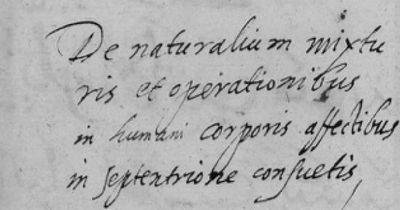 De naturalium mixtu
ris et operationibus
in humani corporis affectibus
in septentrione consuetis,